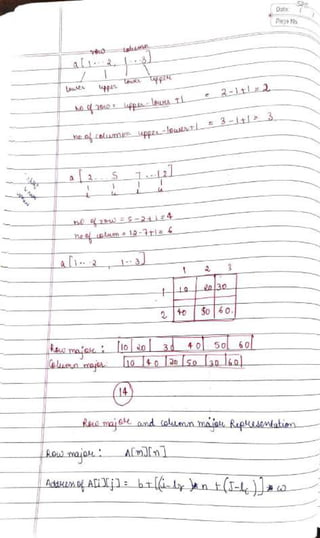 Date:
Page No.
row column
a[1...2, 1...3]
lower upper lower upper
no of row = upper-lower+1 = 2-1+1=2
no of column = upper-lower+1 = 3-1+1=3
a[2...5 7...12]
l u l u
no of row = 5-2+1=4
no of colum = 12-7+1=6
a[1...2, 1...3]
1 2 3
1 10 20 30
2 40 50 60
Row major: 10 20 30 40 50 60
Column major 10 40 20 50 30 60
14
Row major and column major Representation
Row major: A[m][n]
Address of A[i][j] = b+[(i-lr)*n+(J-lc)]*w